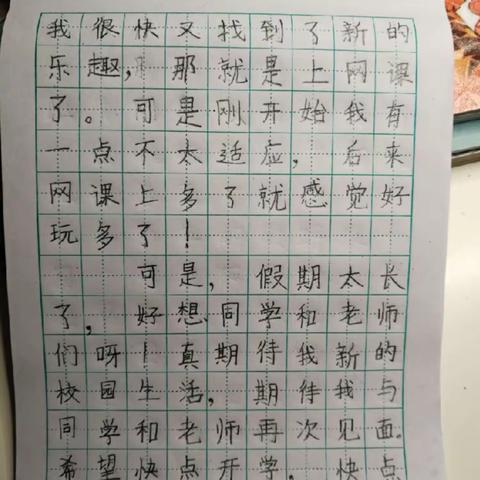 我很快又找到了新的
乐趣，那就是上网课
了。可是刚开始我有
一点不太适应，后来
网课上多了就感觉好
玩多了！
可是，假期太长
了，好想同学和老师
们呀！真期待我新的
校园生活，期待我与
同学和老师再次见面。
希望快点开学，快点